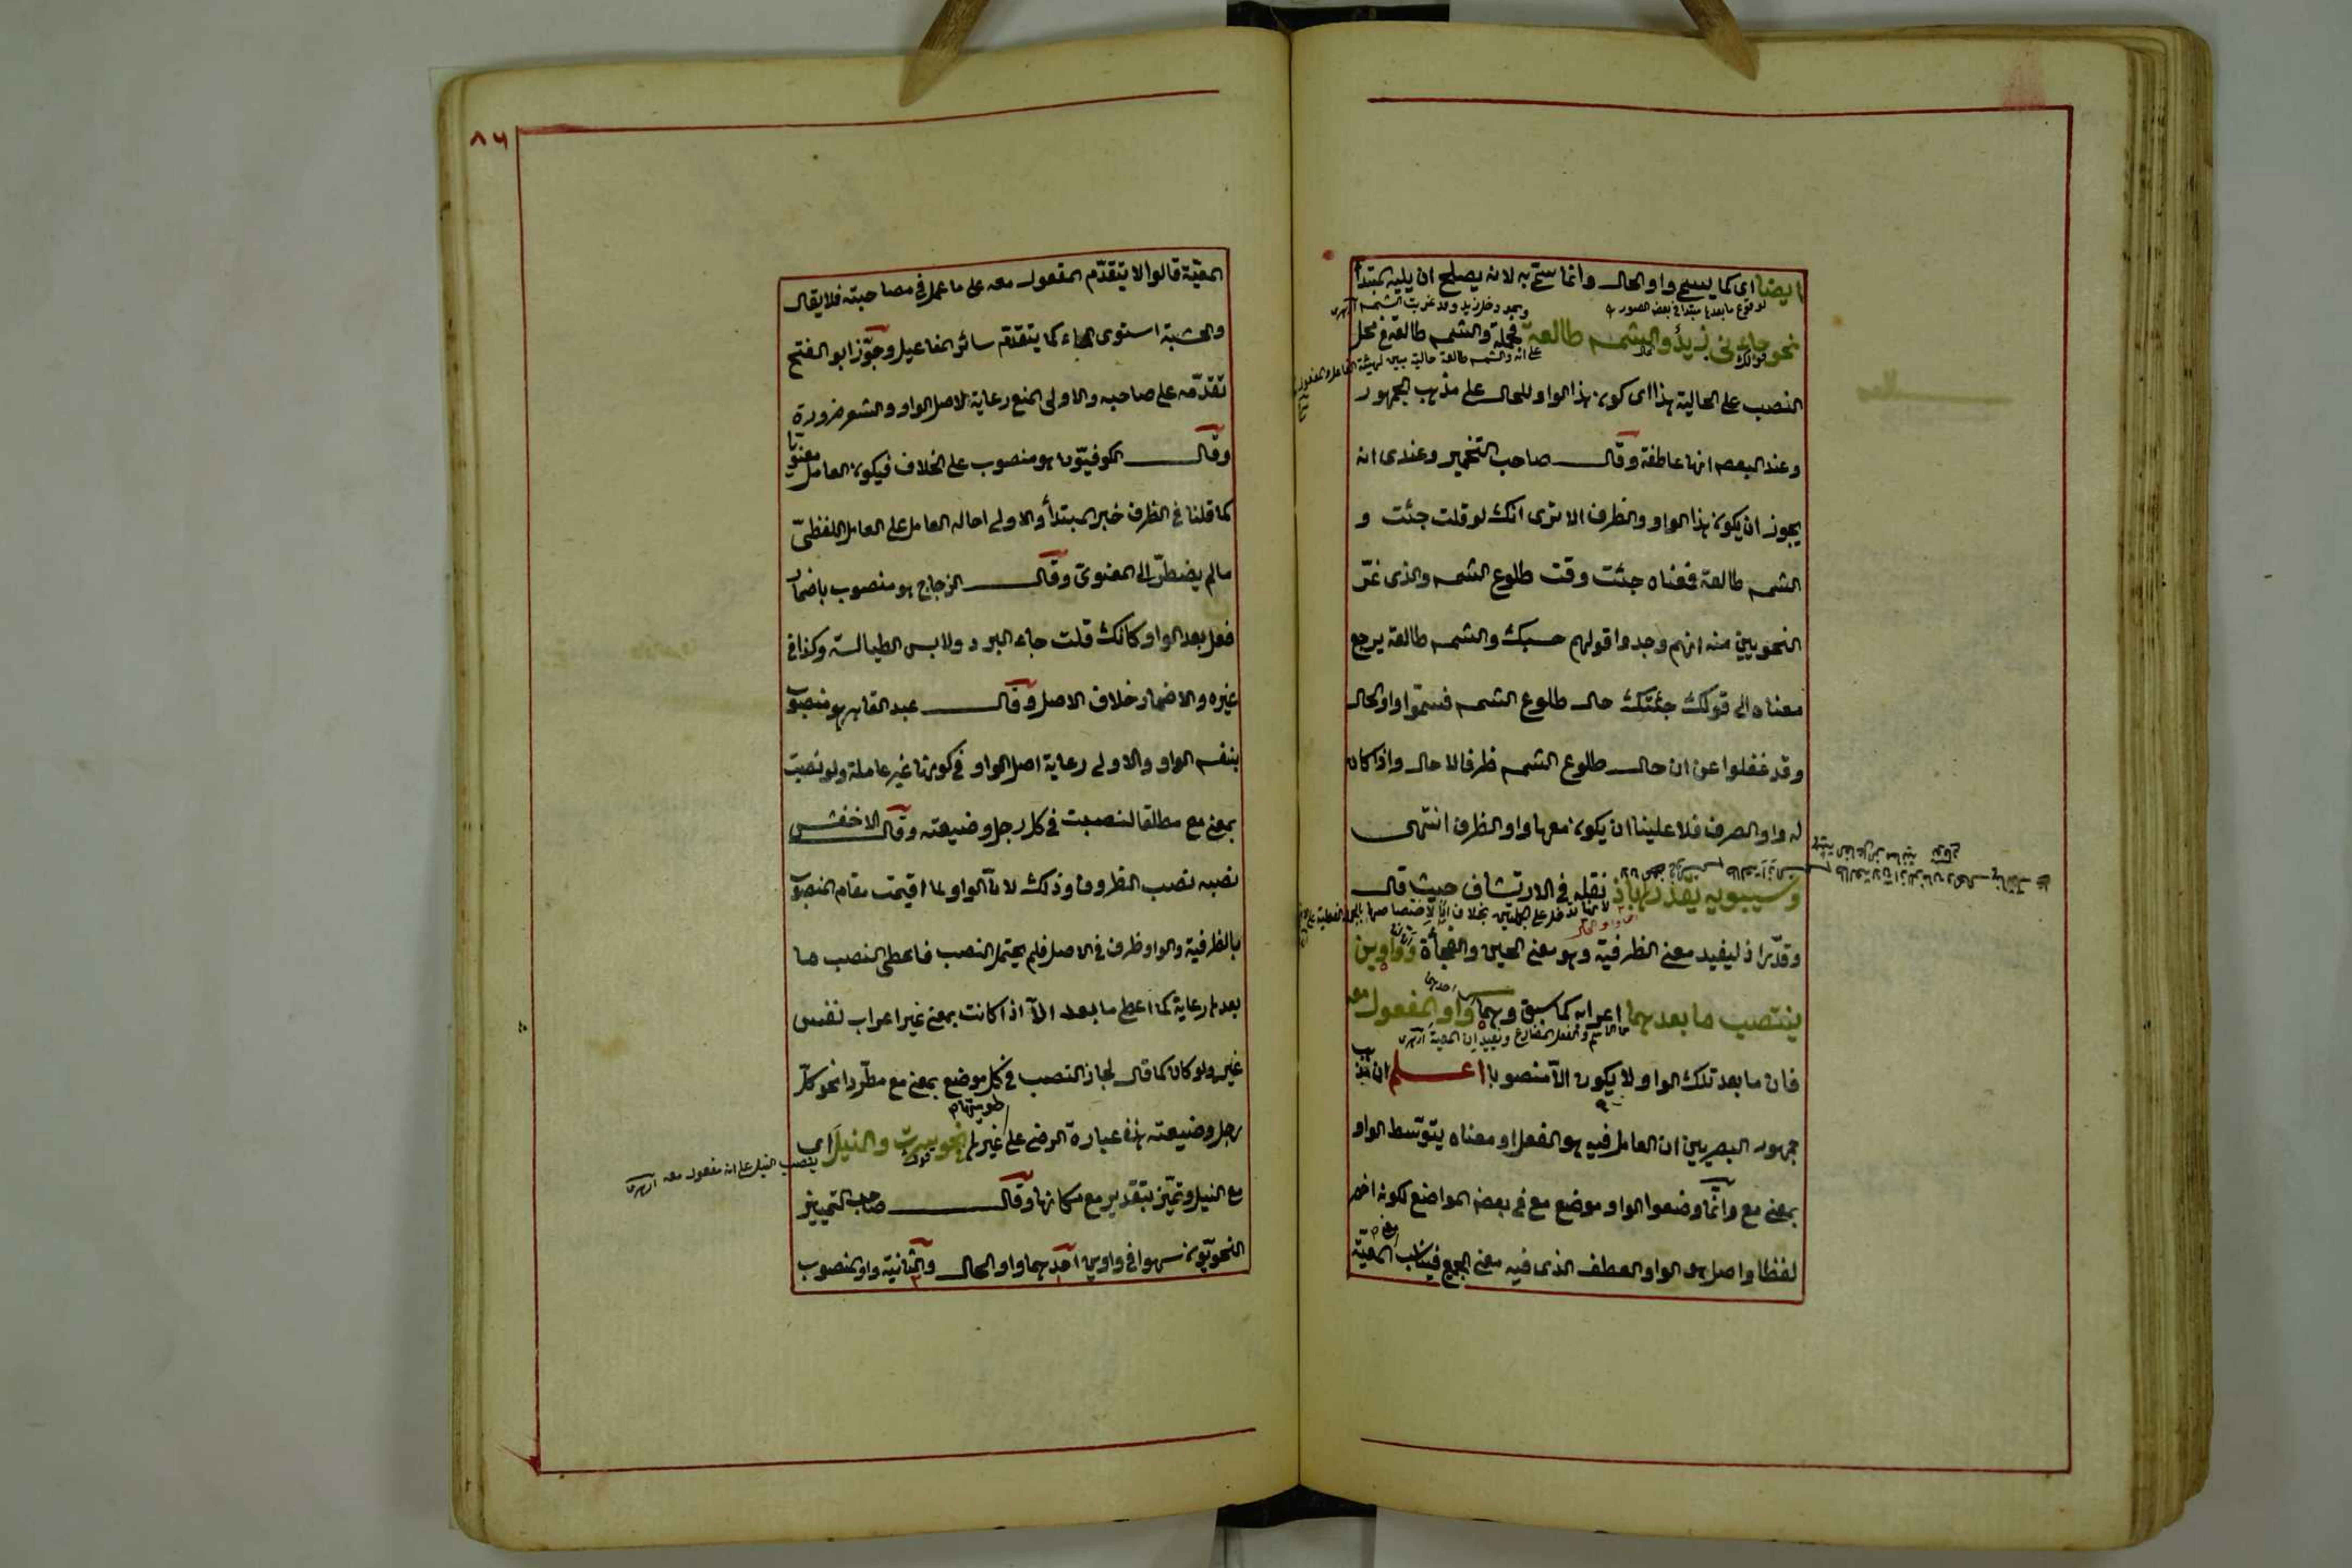 ايضا اى كما يسمى واو الحال وانما سمى به لانه يصلح ان يليه المبتدأ
لوقوع ما بعدها مبتدا فى بعض الصور
ونحو دخل زيد وقد غربت الشمس ازهرى
نحو جاءنى زيد والشمس طالعة فجملة والشمس طالعة فى محل
النصب على الحالية هذا اى كون هذا الواو للحال على مذهب الجمهور
وعند البعض انها عاطفة وقال صاحب التخمير وعندى انه
يجوز ان يكون هذا الواو والظرف الا ترى انك لو قلت جئت و
الشمس طالعة فمعناه جئت وقت طلوع الشمس والذى غرّ
النحويين منه انهم وجدوا قولهم حسبك والشمس طالعة يرجع
معناه الى قولك جئتك حال طلوع الشمس فسمّوا واو الحال
وقد غفلوا عن ان حال طلوع الشمس ظرفا لا حال واذا كان
له واو الصرف فلا علينا ان يكون معها واو الظرف انتهى
وسيبويه يقدّرها باذ نقله فى الارتشاف حيث قال
وقدّر اذ ليفيد معنى الظرفية وهو معنى الحين والفجأة وواوين
ينتصب ما بعدهما اعرابه كما سبق وهما واو المفعول معه
فان ما بعد تلك الواو لا يكون الّا منصوبا اعلم ان مذهب
جمهور البصريين ان العامل فيه هو الفعل او معناه يتوسط الواو
بمعنى مع وانّما وضعوا الواو موضع مع فى بعض المواضع لكونه اخصر
لفظا واصل هى الواو العطف الذى فيه معنى الجمع فيناسب المعيّة
٨٦
المعيّة قالوا لا يتقدّم المفعول معه على ما عمل فى مصاحبته فلا يقال
والخشبة استوى الماء كما يتقدّم سائر المفاعيل وجوّز ابو الفتح
تقدّمه على صاحبه والاولى المنع رعاية لاصل الواو والشعر ضرورة
وقال الكوفيّون هو منصوب على الخلاف فيكون العامل معنويا
كما قلنا فى الظرف خبر المبتدأ والاولى احاله العامل على العامل اللفظىّ
ما لم يضطرّ الى المعنوىّ وقال الزجاج هو منصوب باضمار
فعل بعد الواو كانك قلت جاء البرد ولابس الطيالسة وكذا فى
غيره والاضمار خلاف الاصل وقال عبد القاهر هو منصوب
بنفس الواو والاولى رعاية اصل الواو فى كونها غير عاملة ولو نصبت
بمعنى مع مطلقا لنصبت فى كل رجل وضيعته وقال الاخفش
نصبه نصب الظروف وذلك لانّ الواو لما اقيمت مقام المنصوب
بالظرفية والواو ظرف فى الاصل فلم يحتمل النصب فاعطى النصب ما
بعدها رعاية كما اعطى ما بعد الّا اذا كانت بمعنى غير اعراب نفس
غير ولو كان كما قال لجاز النصب فى كل موضع بمعنى مع مطّردا نحو كلّ
رجل وضيعته هذه عبارة الرضى على غير نحو سرت والنيل اى
ينصب النيل على انه مفعول معه ازهرى
مع النيل وتميّز بتقدير مع مكانها وقال صاحب التمييز
النحويّون سهوا فى واوين احدهما واو الحال والثانية واو المنصوب